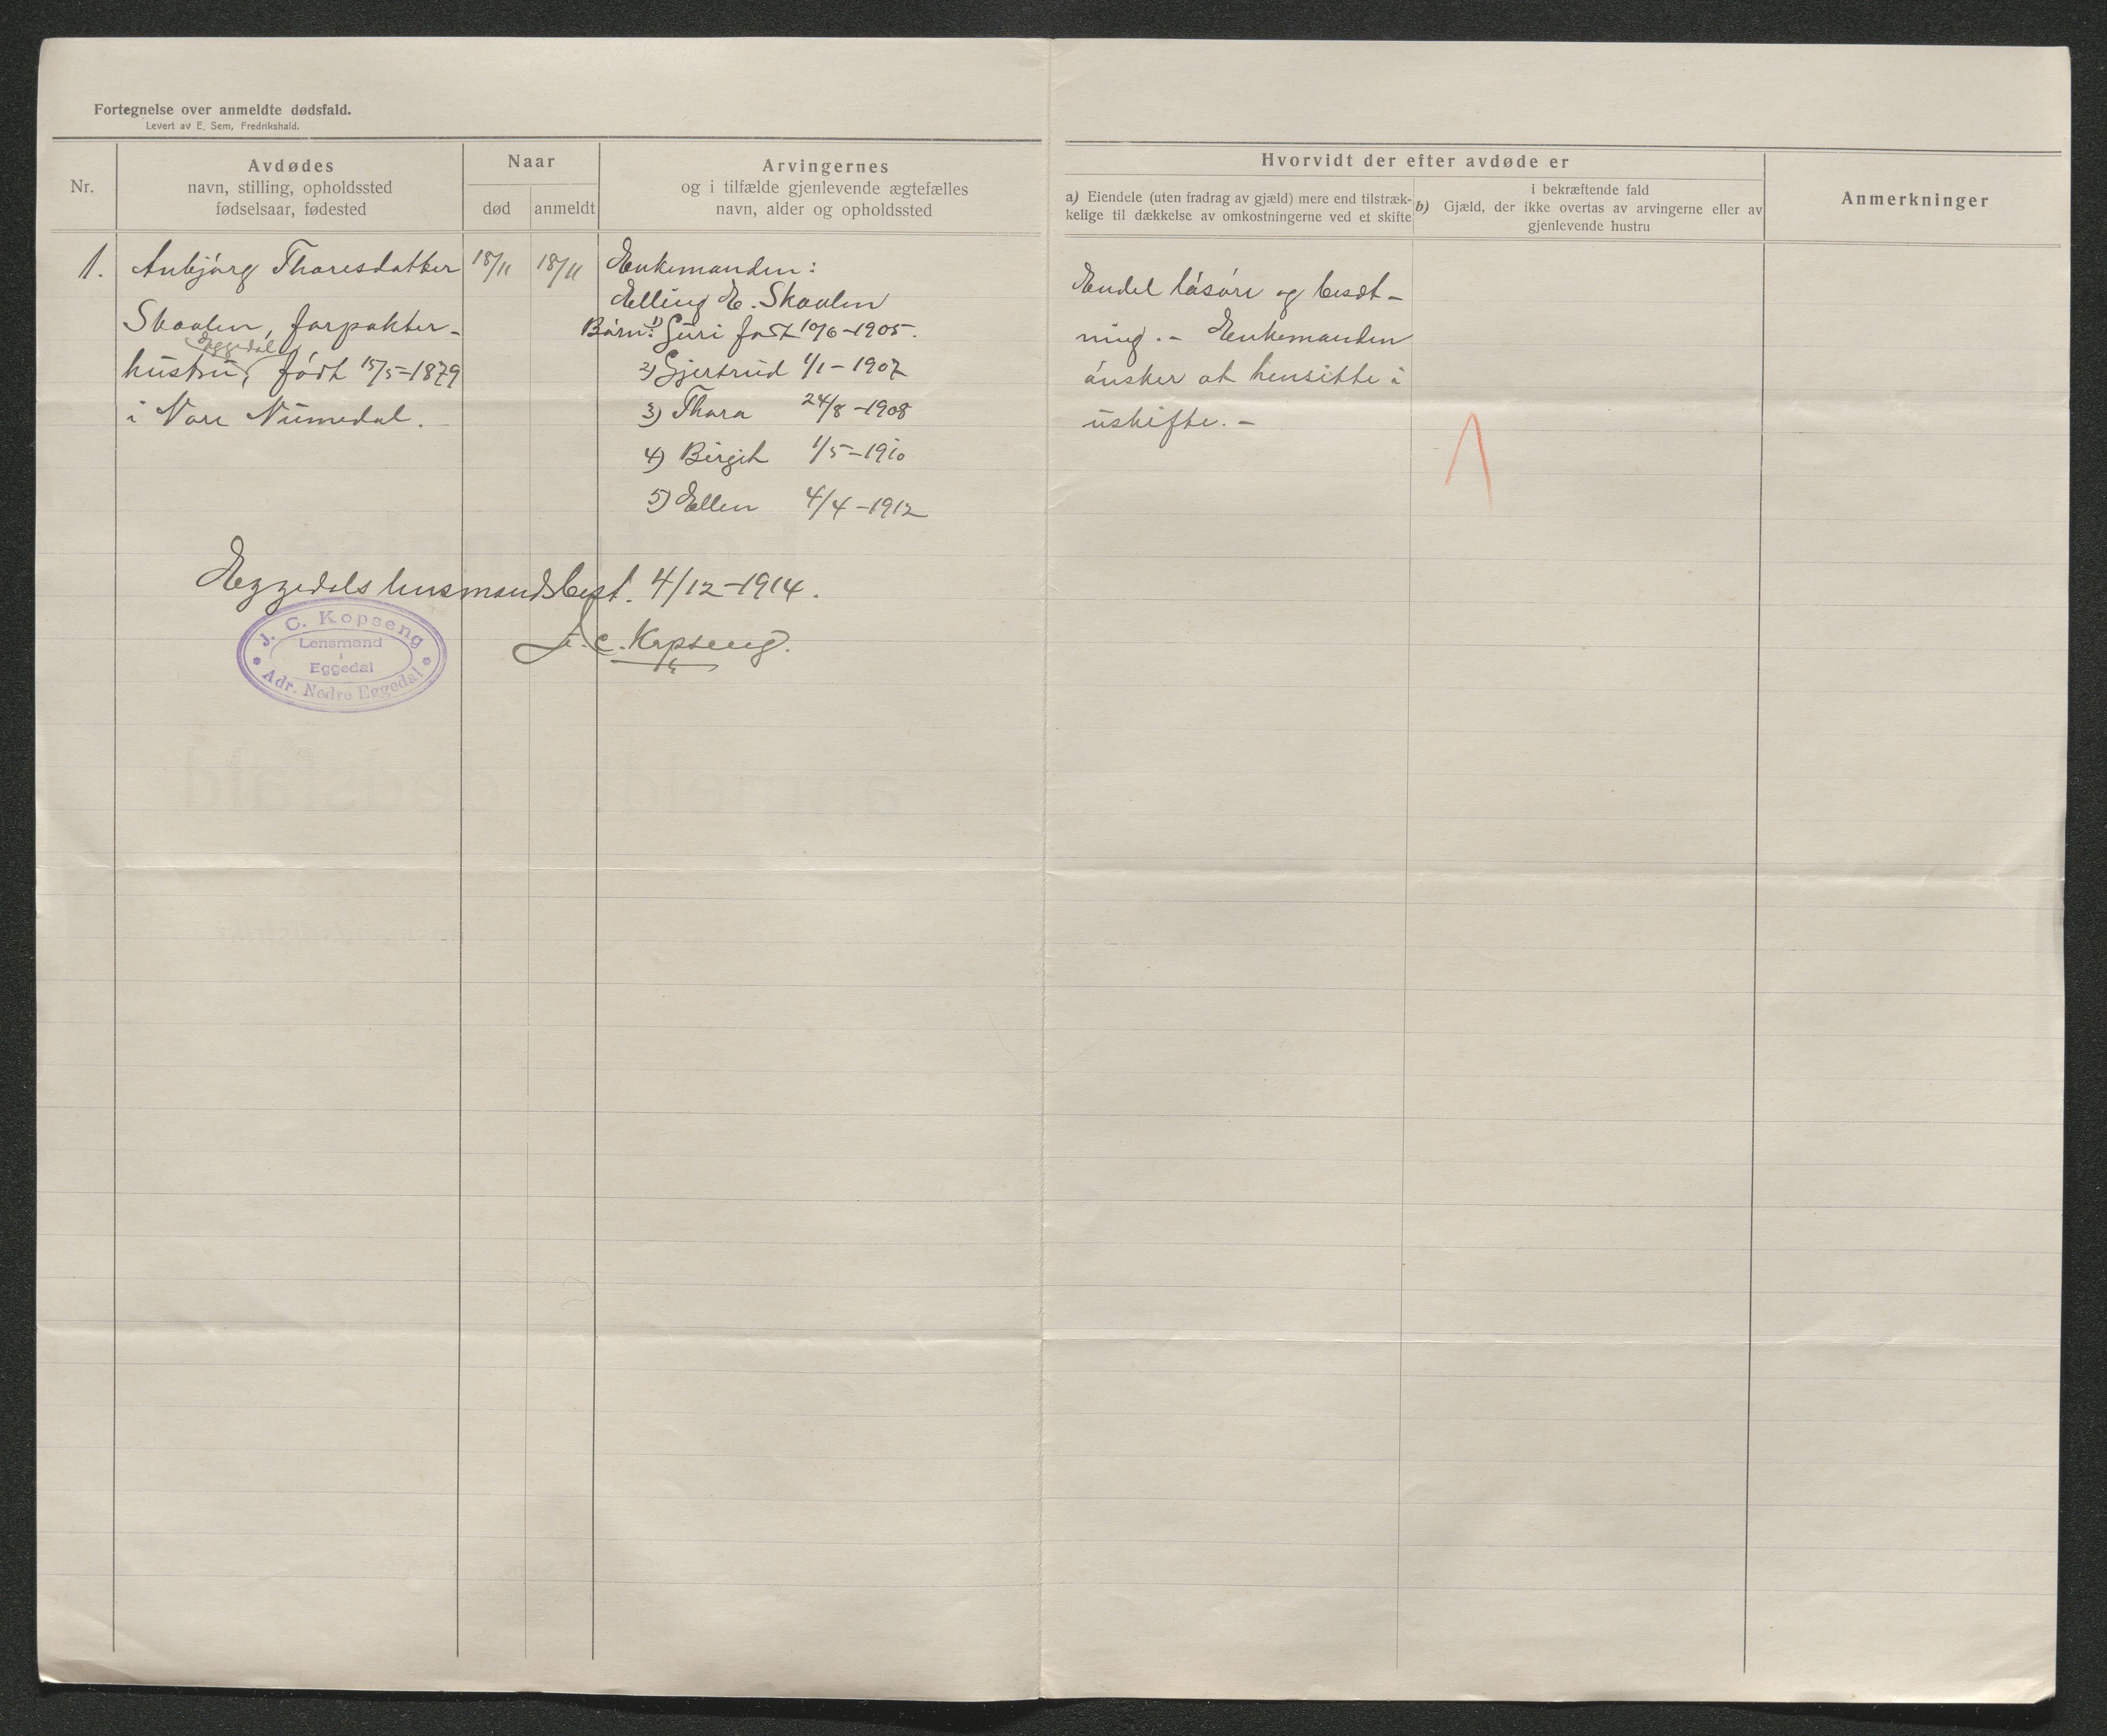 Fortegnelse over anmeldte dødsfald.
Levert av E. Sem, Fredrikshald.
Nr.
Avdødes
navn, stilling, opholdssted
fødselsaar, fødested
Naar
død
anmeldt
Arvingernes
og i tilfælde gjenlevende ægtefælles
navn, alder og opholdssted
Hvorvidt der efter avdøde er
a) Eiendele (uten fradrag av gjæld) mere end tilstræk-
kelige til dækkelse av omkostningerne ved et skifte
i bekræftende fald
b) Gjæld, der ikke overtas av arvingerne eller av
gjenlevende hustru
Anmerkninger
1.
Anbjørg Thoresdatter
Skaalen, forpakter-
Eggedal
hustru, født 15/5-1879
i Nore Numedal.
18/11
18/11
Enkemanden:
Elling E. Skaalen
Børn: 1) Guri født 10/6-1905.
2) Gjertrud 1/1-1907
3) Thora 24/8-1908
4) Birgit 1/5-1910
5) Ellen 4/4-1912
Endel løsøre og besæt-
ning.- Enkemanden
ønsker at hensitte i
uskifte.-
Eggedals lensmandsbest. 4/12-1914.
J. C. Kopseng.
J. C. Kopseng
Lensmand
i
Eggedal
Adr. Nedre Eggedal